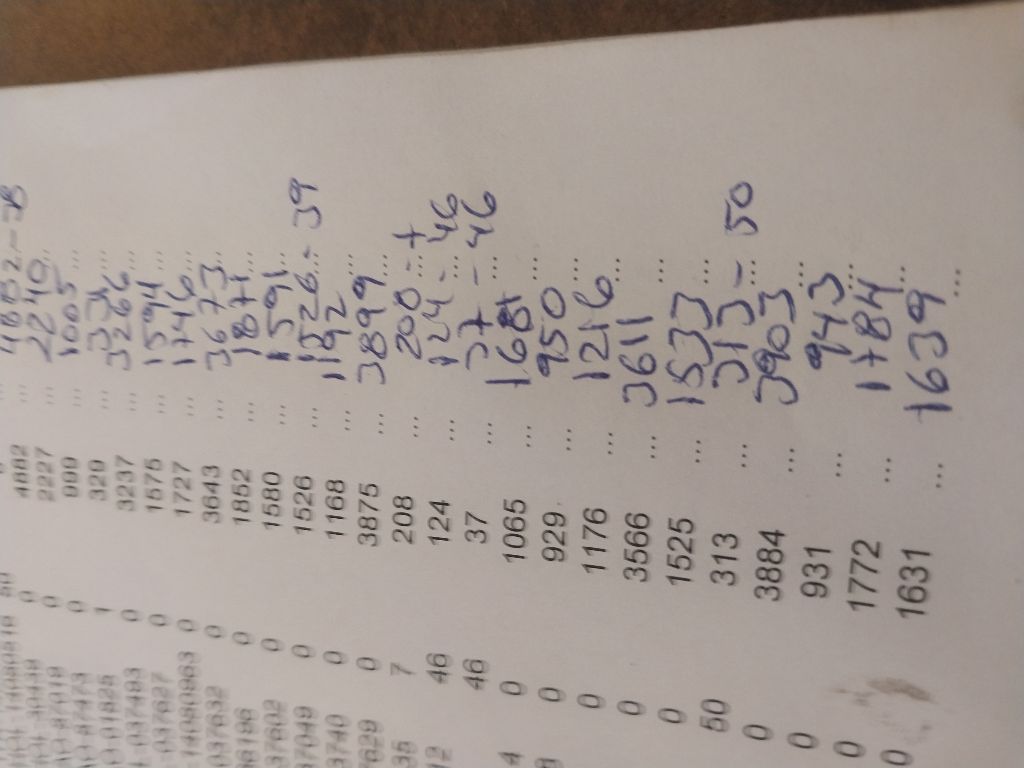 0 4882 ... 4882 - 38
0 2227 ... 2240 ...
0 999 ... 1005 ...
1 329 ... ...
0 3237 ... 3266 ...
0 1575 ... 1594 ...
037627 0 1727 ... 1746 ...
0 3643 ... 3673 ...
037632 0 1852 ... 1871 ...
0 1580 ... 1591 ...
37602 0 1526 ... 1526 - 39
37049 0 1168 ... 1192 ...
3740 0 3875 ... 3899 ...
7629 7 208 ... 200 - 7
35 46 124 ... 124 - 46
12 46 37 ... 37 - 46
4 0 1065 ... ...
8 0 929 ... 950 ...
0 1176 ... 1216 ...
0 3566 ... 3611 ...
0 1525 ... 1533 ...
50 313 ... 313 - 50
0 3884 ... 3903 ...
0 931 ... 943 ...
0 1772 ... 1784 ...
0 1631 ... 1639 ...